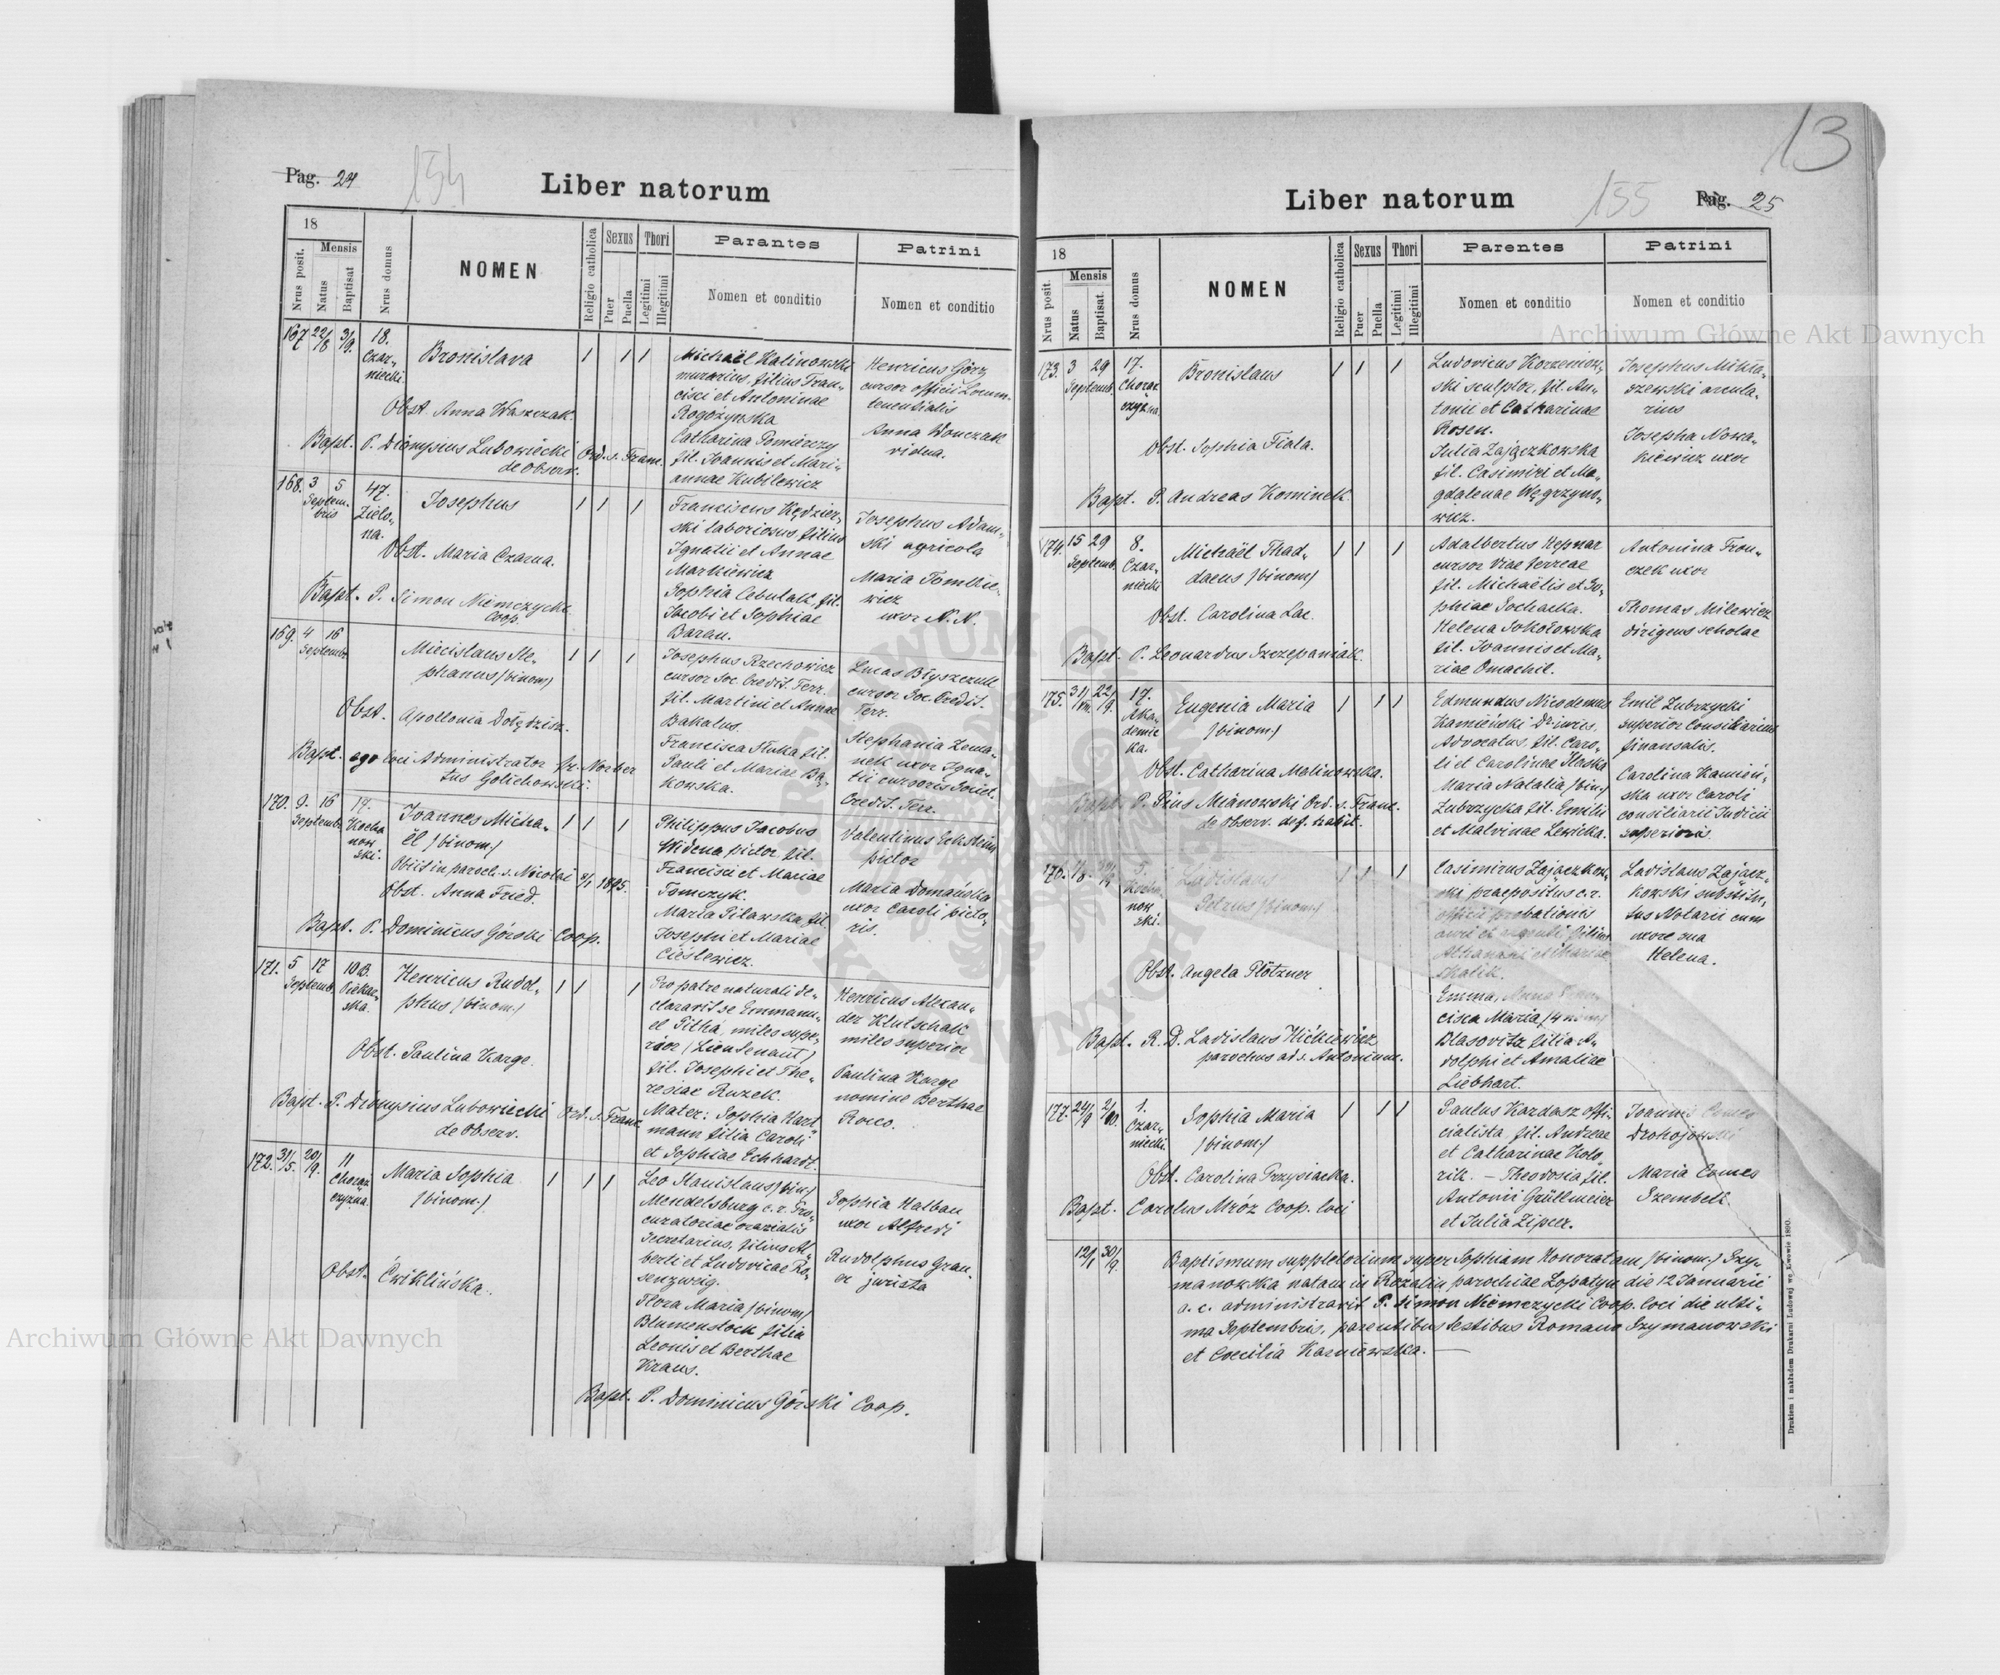 Pag. 24
154
Liber natorum
18
Nrus posit.
Mensis
Natus
Baptisat
Nrus domus
NOMEN
Religio catholica
Sexus
Puer
Puella
Thori
Legitimi
Illegitimi
Parantes
Nomen et conditio
Patrini
Nomen et conditio
167 22/8 3/9. 18. Czar-
niecki
Bronislava
1 1 1
Obst. Anna Waszczak.
Bapt. P. Dionysius Lubowiecki Ord. s. Franc.
de Observ.
Michaël Kalinowski
murarius, filius Fran-
cisci et Antoninae
Rogożynska
Catharina Pomierczy
fil. Joannis et Mari-
annae Kubilewicz
Henricus Görz
cursor officii Locum-
tenentialis
Anna Wonczak
vidua.
168. 3 5
Septem-
bris
47.
Zielo-
na.
Josephus
1 1 1
Obst. Maria Czarna.
Bapt. P. Simon Niemczycki
Coop.
Franciscus Kędzier-
ski laboriosus filius
Ignatii et Annae
Markiewicz
Sophia Cebulak, fil.
Jacobi et Sophiae
Baran.
Josephus Adam-
ski agricola
Maria Tomkie-
wicz
uxor N. N.
169. 4 16
Septembr
Miecislaus Ste-
phanus /binom/
1 1 1
Obst. Apollonia Dołędzisz.
Bapt. ego loci Administrator fr. Norber
tus Golichowski.
Josephus Rzechowicz
cursor Soc. Credit. Terr.
fil. Martini et Annae
Bakalus.
Francisca Słuka fil.
Pauli et Mariae Bą-
kowska.
Lucas Błyszczuk
cursor Soc. Credit.
Terr.
Stephania Zema-
nek uxor Igna-
tii cursoris Societ.
Credit. Terr.
170. 9. 16
Septembr
19.
Kocha
now
ski.
Joannes Micha-
ël /binom/
1 1 1
Obiit in paroch. s. Nicolai 8/1 1895.
Obst. Anna Fried.
Bapt. P. Dominicus Górski Coop.
Philippus Jacobus
Widena pictor fil.
Francisci et Mariae
Tomczyk.
Maria Pilawska fil.
Josephi et Mariae
Cieślewicz.
Valentinus Eckstein
pictor
Maria Domańska
uxor Caroli picto-
ris.
171. 5 17
Septemb.
10 B.
Piekar-
ska.
Henricus Rudol-
phus /binom./
1 1 1
Obst. Paulina Karge.
Bapt. P. Dionysius Lubowiecki Ord. s. Franc.
de Observ.
Pro patre naturali de-
claravit se Emmanu-
el Pitha, miles supe-
rior /Lieutenant/
fil. Josephi et The-
resiae Ruzek.
Mater: Sophia Hart-
mann filia Caroli
et Sophiae Echhardt.
Henricus Alexan-
der Klutschak
miles superior
Paulina Karge
nomine Berthae
Rocco.
172. 31/5. 20/9. 11
Chorąż
czyzna.
Maria Sophia
/binom./
1 1 1
Obst. Ćwiklińska.
Leo Stanislaus /bin./
Mendelsburg c. r. Pro-
curatoriae aerarialis
Secretarius, filius Al-
berti et Ludovicae Ro-
senzweig.
Flora Maria /binom/
Blumenstock filia
Leonis et Berthae
Kraus.
Sophia Halban
uxor Alfredi
Rudolphus Grau-
er jurista
Bapt. P. Dominicus Górski Coop.
13
Liber natorum
155
Pag. 25
18
Nrus posit.
Mensis
Natus
Baptisat.
Nrus domus
NOMEN
Religio catholica
Sexus
Puer
Puella
Thori
Legitimi
Illegitimi
Parentes
Nomen et conditio
Patrini
Nomen et conditio
173. 3 29
Septemb.
17.
Chorąż
czyzna
Bronislaus
1 1 1
Obst. Sophia Fiala.
Bapt. P. Andreas Kominek.
Ludovicus Korzeniow-
ski sculptor, fil. An-
tonii et Catharinae
Rosen.
Julia Zajączkowska
fil. Casimiri et Ma-
gdalenae Węgrzyno-
wicz.
Josephus Mikła-
szewski arcula-
rius
Josepha Nowa-
kiewicz uxor
174. 15 29
Septemb.
8.
Czar-
niecki
Michaël Thad-
daeus /binom/
1 1 1
Obst. Carolina Lac.
Bapt. P. Leonardus Szczepaniak.
Adalbertus Kepnar
cursor viae ferreae
fil. Michaëlis et So-
phiae Sochacka.
Helena Sokołowska
fil. Joannis et Ma-
riae Omachil.
Antonina Fron-
czek uxor
Thomas Milewicz
dirigens scholae
175. 31/VIII. 22/9. 17.
Aka-
demic
ka.
Eugenia Maria
/binom./
1 1 1
Obst. Catharina Malinowska.
Bapt. P. Pius Mianowski Ord. s. Franc.
de Observ. def. habit.
Edmundus Nicodemus
Kamieński Dr iuris.
Advocatus, fil. Caro-
li et Carolinae Skaska
Maria Natalia /bin./
Zubrzycka fil. Emilii
et Malvinae Lewicka.
Emil Zubrzycki
superior Consiliarius
finansalis.
Carolina Kamień-
ska uxor Caroli
consiliarii Iudicii
superioris.
176.
5.
Kocha
now
ski.
Ladislaus
Petrus /binom./
1 1 1
Obst. Angela Plötzner
Bapt. R. D. Ladislaus Hićkiewicz
parochus ad s. Antonium.
Casimirus Zajączkow-
ski praepositus c. r.
officii probationis
auri et argenti filius
Athanasii et Mariae
Skalik.
Emma, Anna Fran-
cisca Maria /4 nom/
Blasovitz filia A-
dolphi et Amaliae
Liebhart.
Ladislaus Zającz-
kowski substitu-
tus Notarii cum
uxore sua
Helena.
177. 24/9 2/10. 1.
Czar-
niecki.
Sophia Maria
/binom./
1 1 1
Obst. Carolina Przysiacka.
Bapt. Carolus Mróz Coop. loci
Paulus Kardasz offi-
cialista fil. Andreae
et Catharinae Koto-
rik. — Theodosia fil.
Antonii Grüllmeier
et Julia Zipser.
Joannes Comes
Drohojowski
Maria Comes
Szembek.
12/1 30/9. Baptismum suppletorium super Sophiam Honoratam /binom./ Szy-
manowska natam in Rozalin parochiae Lopatyn die 12 Januarii
a. c. administravit P. Simon Niemczycki Coop. loci die ulti-
ma Septembris, parentibus testibus Romano Szymanowski
et Coecilia Kasniewska. —
Drukiem i nakładem Drukarni Ludowej we Lwowie 1890.
Archiwum Główne Akt Dawnych
Archiwum Główne Akt Dawnych